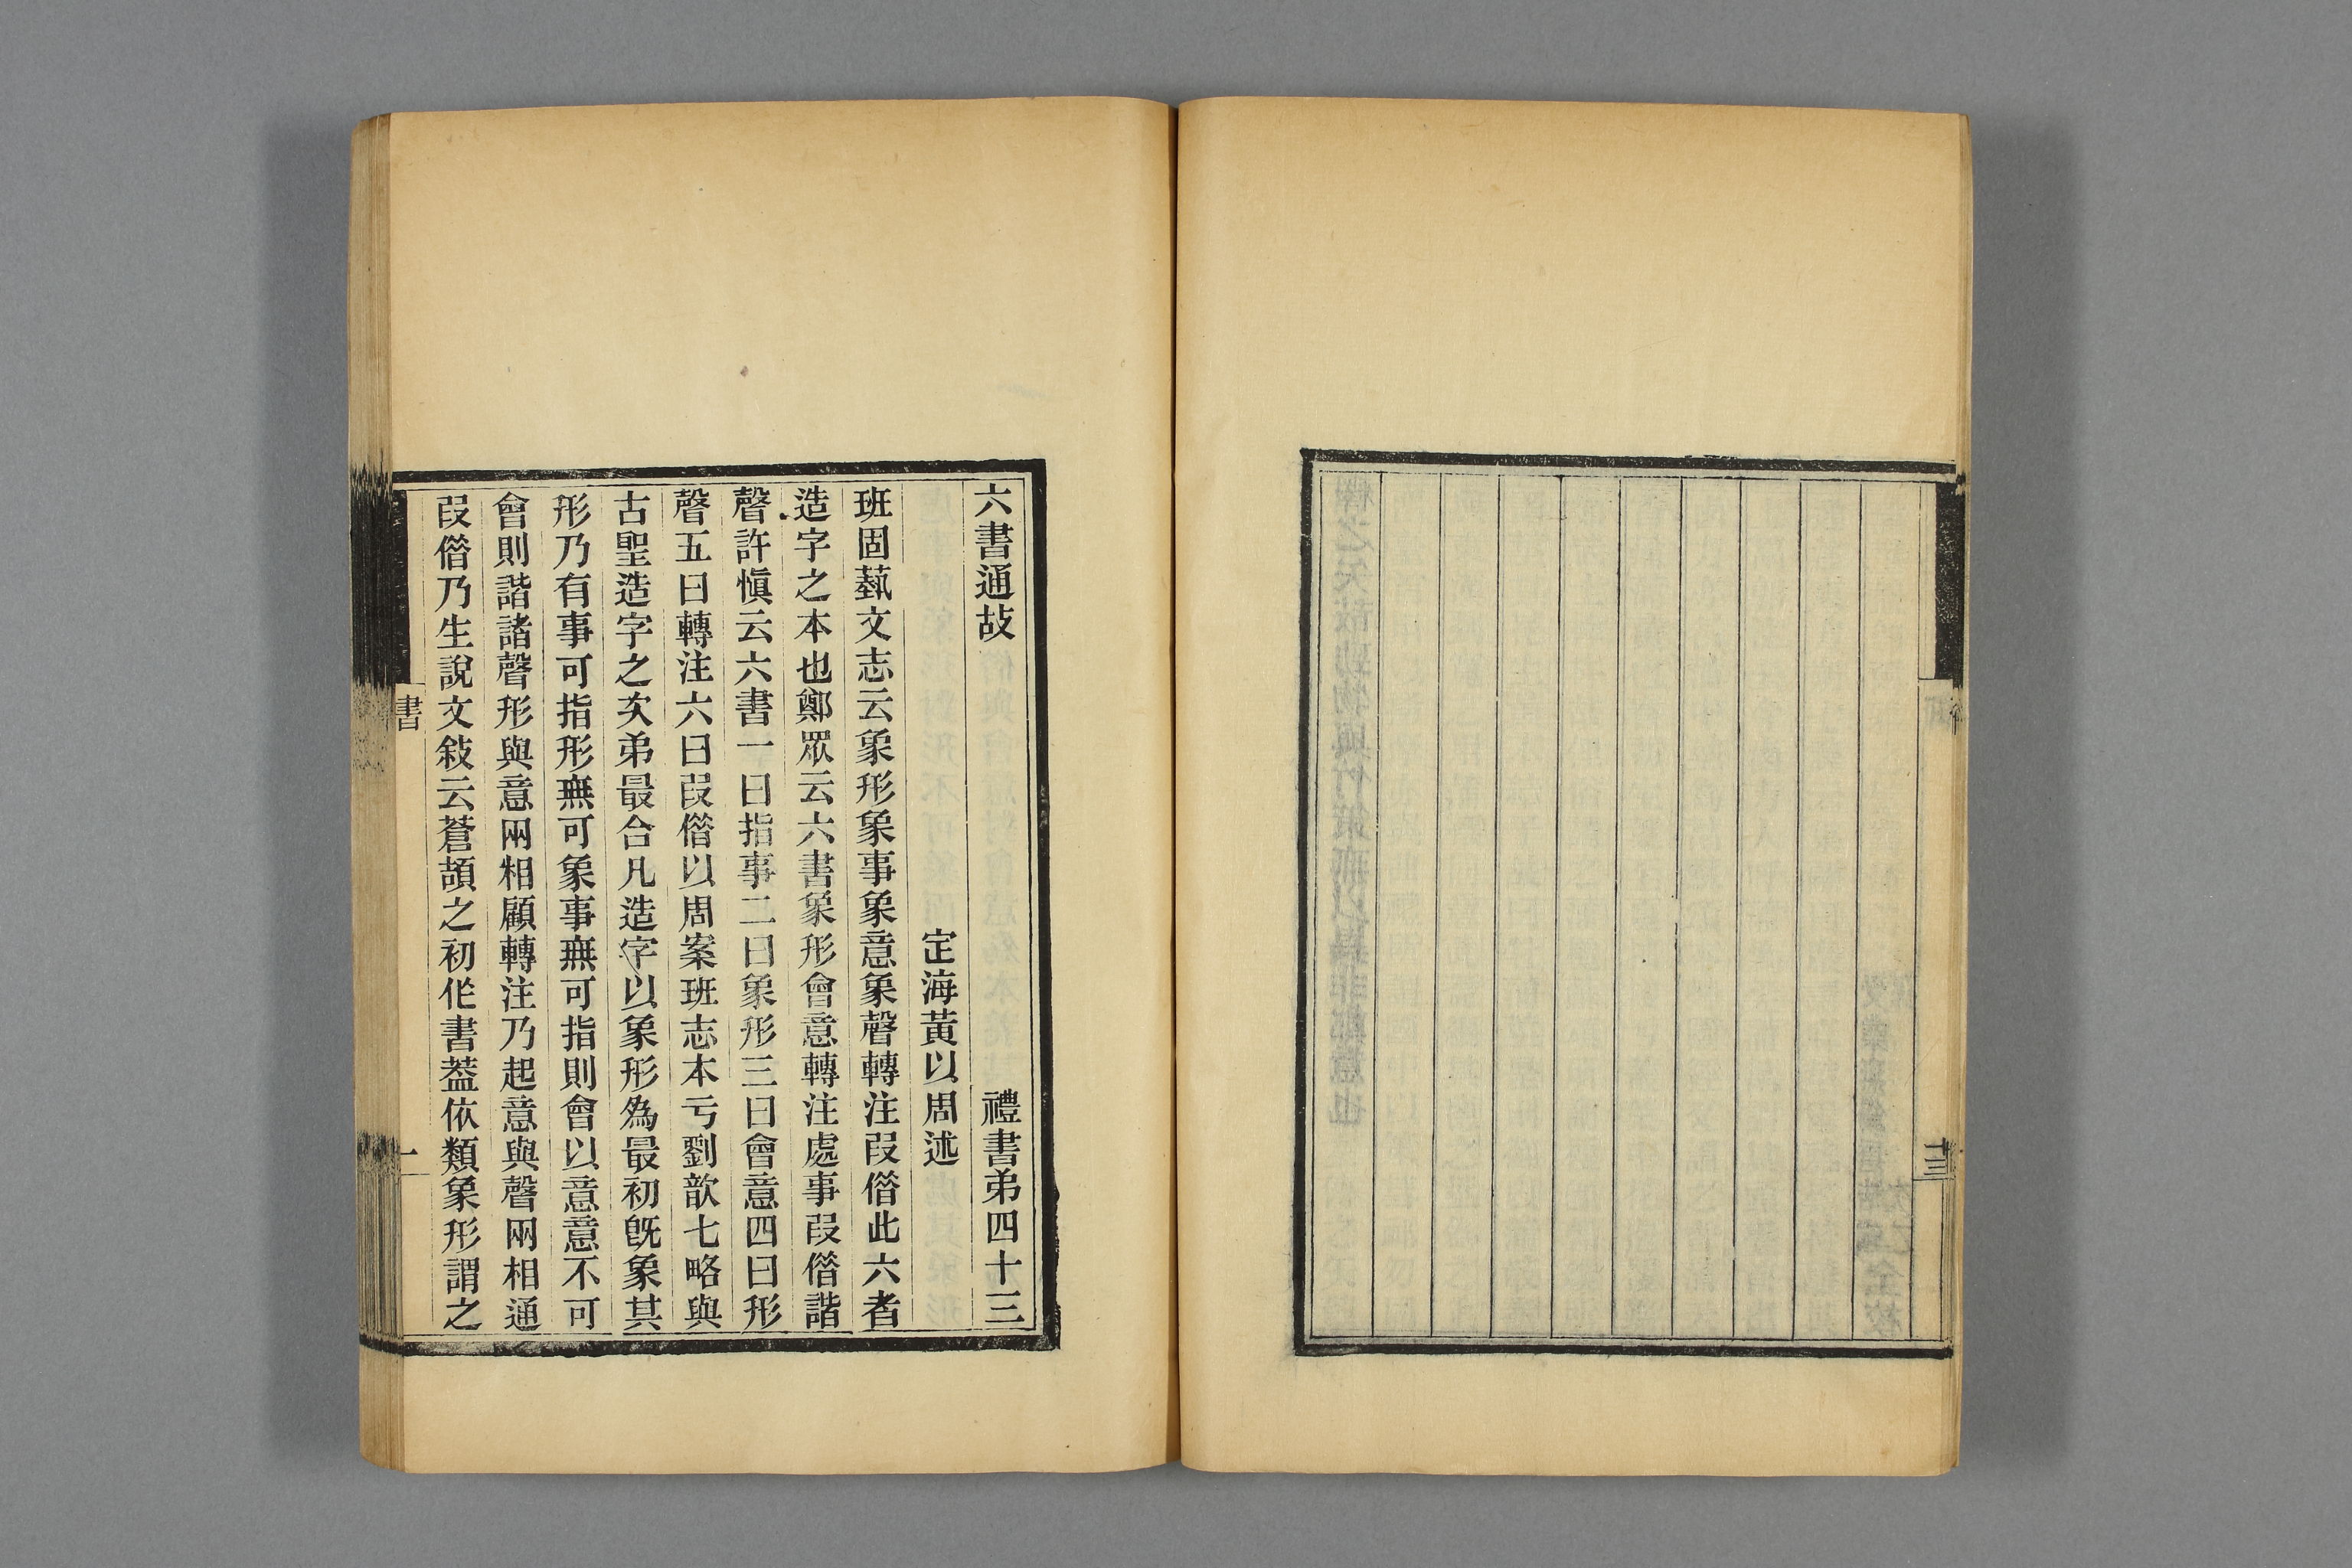 十三
六書通故 禮書弟四十三
定海黃以周述
班固蓺文志云象形象事象意象聲轉注叚借此六者
造字之本也鄭眾云六書象形會意轉注處事叚借諧
聲許愼云六書一曰指事二曰象形三曰會意四曰形
聲五曰轉注六曰叚借以周案班志本亏劉歆七略與
古聖造字之次弟最合凡造字以象形爲最初旣象其
形乃有事可指形無可象事無可指則會以意意不可
會則諧諸聲形與意兩相顧轉注乃起意與聲兩相通
叚借乃生說文敍云蒼頡之初作書葢依類象形謂之
書
一